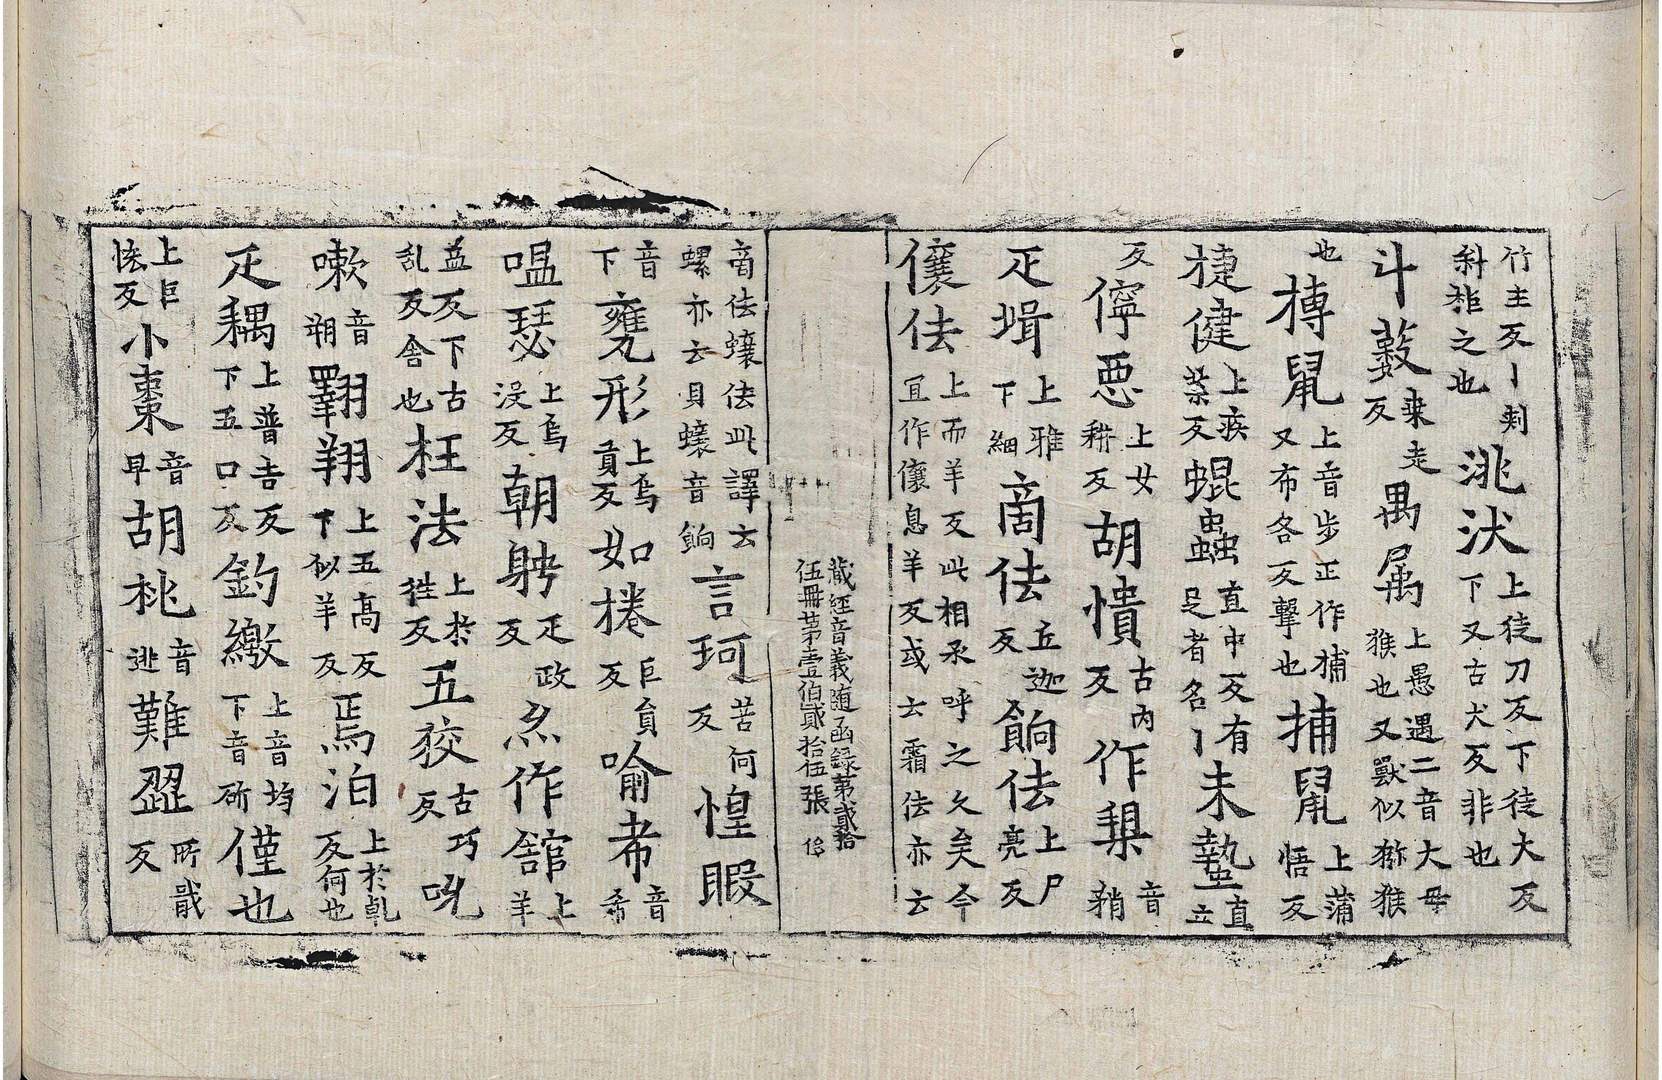 竹主反丨剌斜柱之也洮汱上徒刀反下徒大反下又古犬反非也
斗藪桒走反禺属上愚遇二音大母猴也又獸似猕猴
也搏鼠上音步正作捕又布各反擊也捕鼠上蒲悟反
捷健上疾葉反蜫蟲直中反有足者名丨未蟄直立
反儜惡上女耕反胡憒古内反作槼音
疋堳上雅下細啇佉丘迦反餉佉上尸亮反
儴佉上而羊反此相承呼之久矣今冝作儴息羊反或云霜佉亦云
藏经音義随函録苐貳拾伍冊苐壹伯貳拾伍張
啇佉蠰佉此譯云螺亦云貝蠰音餉言珂苦何反惶暇
音下甕形上烏貢反如棬巨負反喻希音希
嗢瑟上烏没反朝聘疋政反烋作館上羊
益反下古乱反舎也枉法上於徃反五狡古巧反吮
嗽音朔翺翔上五高反下似羊反焉泊上於乹反何也
疋耦上普吉反下五口反鈞繳上音均下音斫僅也
上巨恡反小棗音早胡桃音逃難澀所戢反